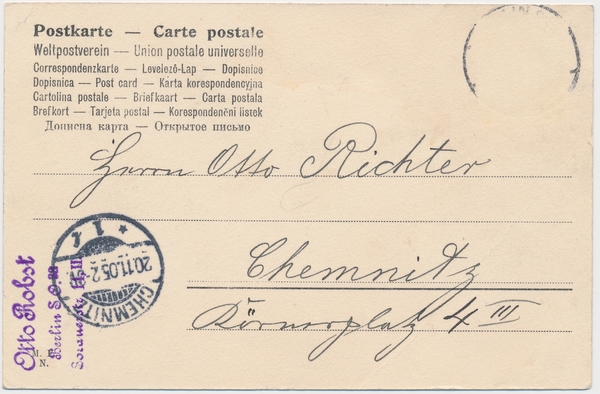 Postkarte — Carte postale
Weltpostverein — Union postale universelle
Correspondenzkarte — Levelező-Lap — Dopisnice
Dopisnica — Post card — Karta korespondencyjna
Cartolina postale — Briefkaart — Carta postala
Brefkort — Tarjeta postal — Korespondenčni listek
Дописна карта — Открытое письмо
Herrn Otto Richter
Chemnitz
Körnerplatz 4 III
* 1 f
20.11.05.2
CHEMNITZ
Otto Robst
Berlin S.O.
N.